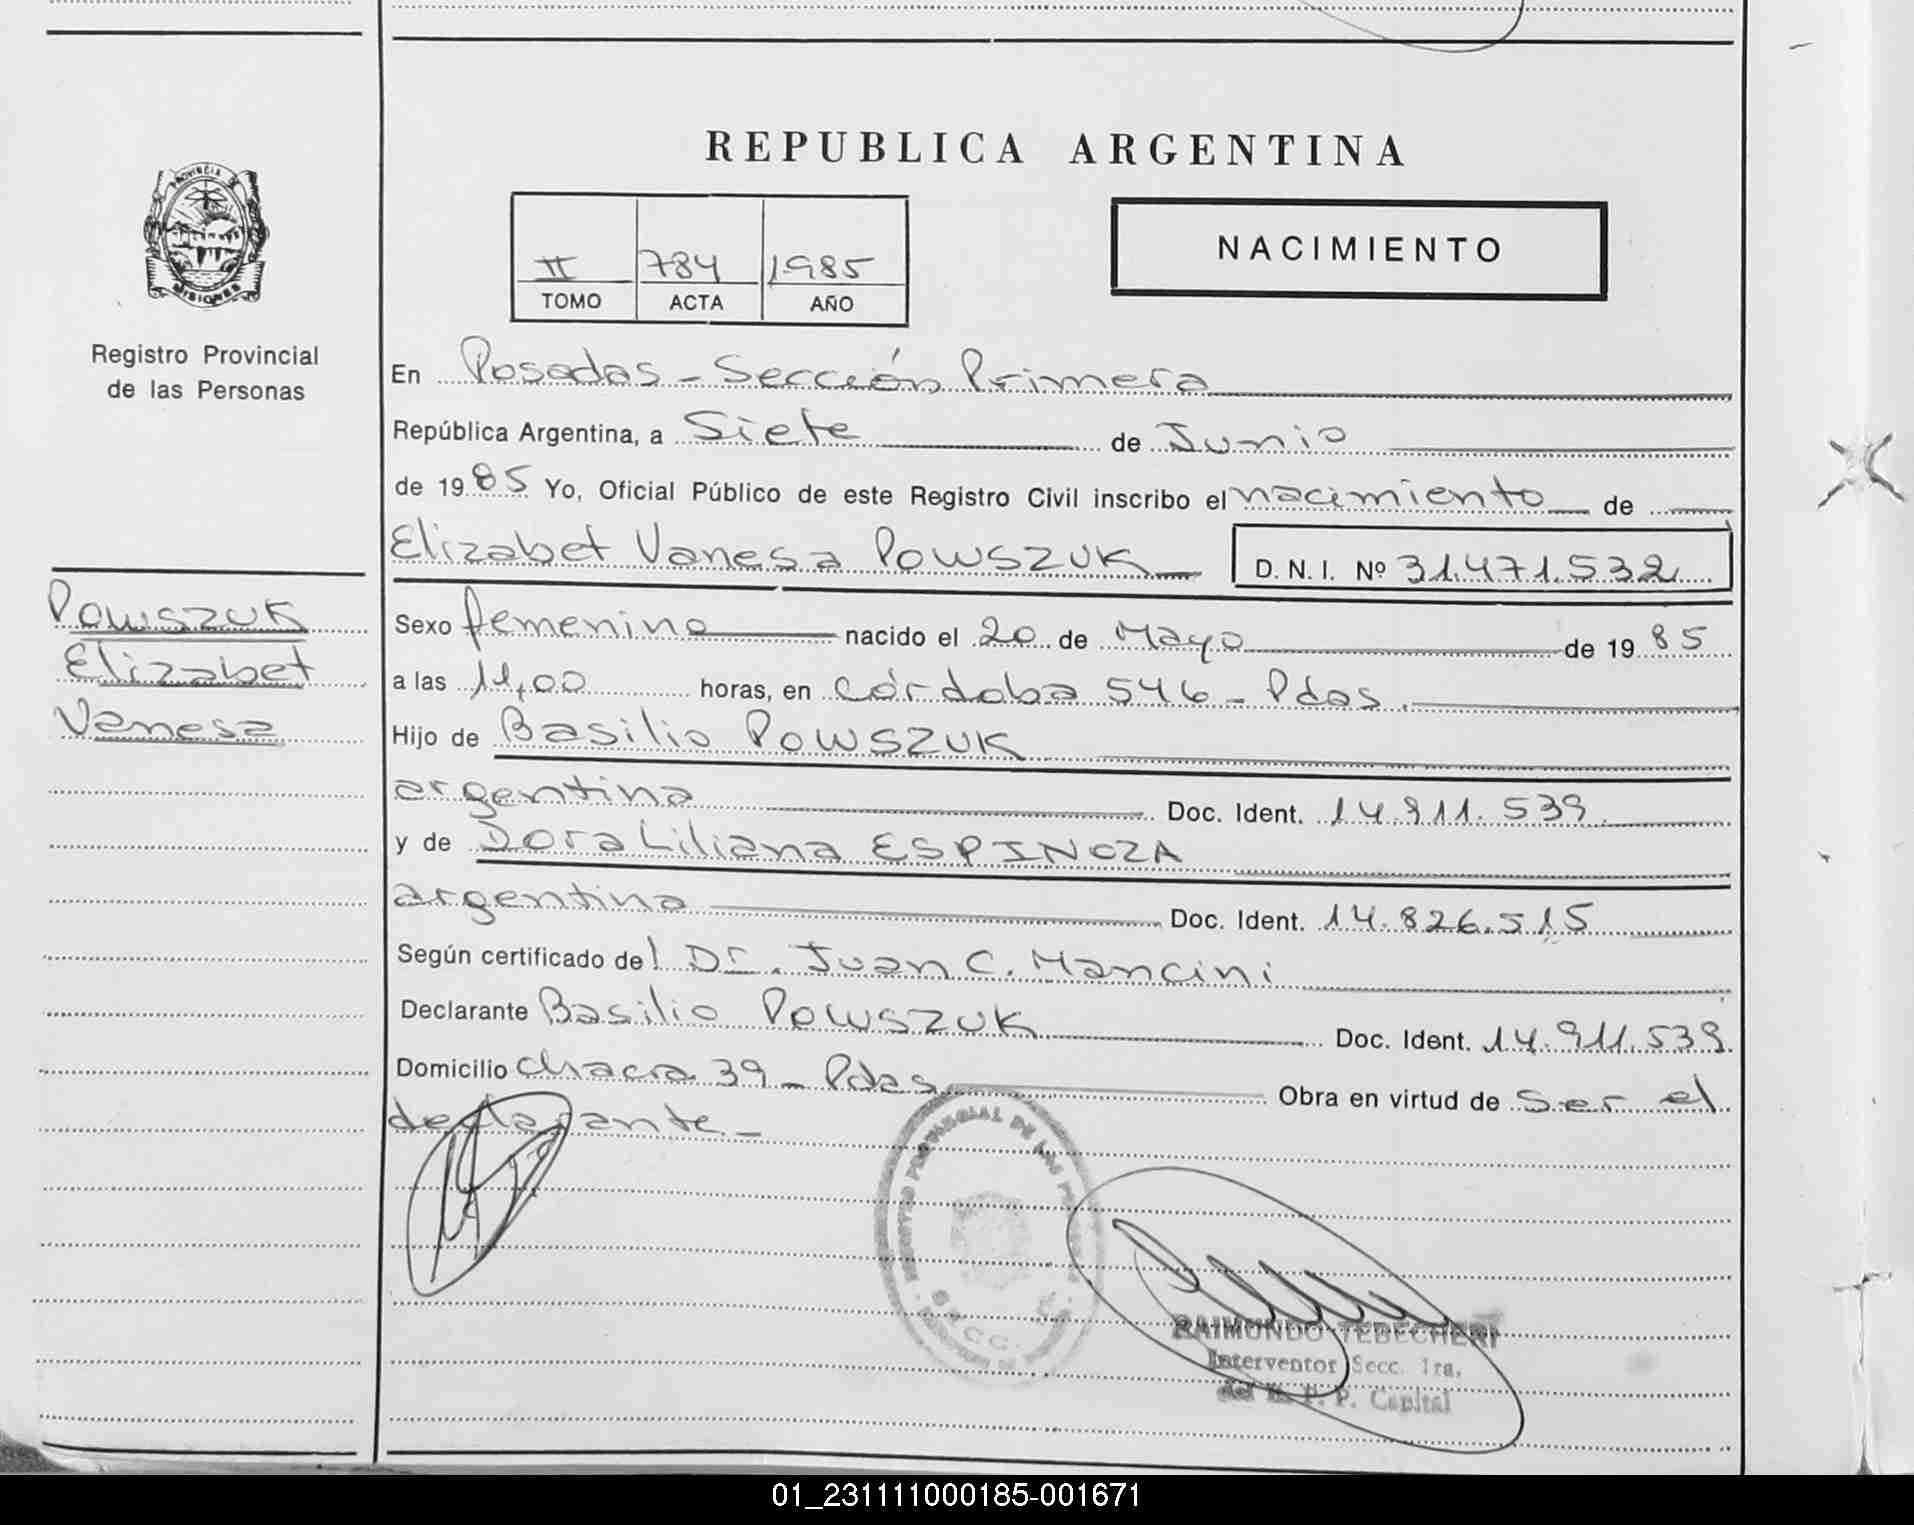 REPUBLICA ARGENTINA
PROVINCIA DE
MISIONES
Registro Provincial
de las Personas
II 784 1985
TOMO ACTA AÑO
NACIMIENTO
En Posadas - Sección Primera
República Argentina, a Siete de Junio
de 1985 Yo, Oficial Público de este Registro Civil inscribo el nacimiento de
Elizabet Vanesa POWSZUK D. N. I. Nº 31.471.532
POWSZUK
Elizabet
Vanesa
Sexo femenino nacido el 20 de Mayo de 1985
a las 11,00 horas, en Córdoba 546 - Pdas.
Hijo de Basilio POWSZUK
argentina Doc. Ident. 14.911.539.
y de Dora Liliana ESPINOZA
argentina Doc. Ident. 14.826.515
Según certificado del Dr. Juan C. Mancini
Declarante Basilio POWSZUK Doc. Ident. 14.911.539
Domicilio Chacra 39 - Pdas Obra en virtud de ser el
declarante -
PROVINCIAL DE LAS
RAIMUNDO TEBECHERI
Interventor Secc. 1ra.
del R. P. P. Capital
01_231111000185-001671